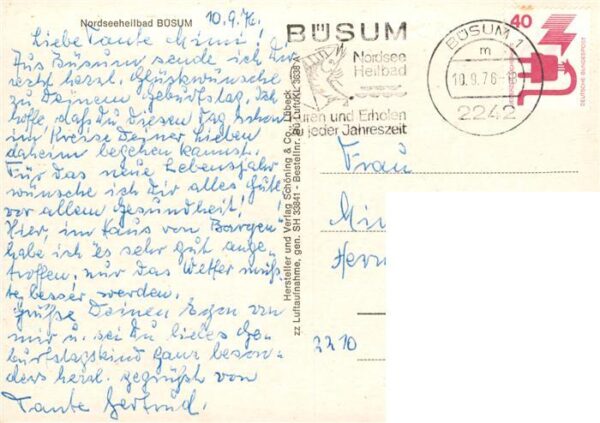 Nordseeheilbad BÜSUM
10.9.76.
Liebe Tante Mimi!
Aus Büsum sende ich Dir
recht herzl. Glückwünsche
zu Deinem Geburtstag. Ich
hoffe, daß Du diesen Tag schon
im Kreise Deiner Lieben
daheim begehen kannst.
Für das neue Lebensjahr
wünsche ich Dir alles Gute
vor allem Gesundheit!
Hier, im Haus von Bargen
habe ich es sehr gut ange-
troffen, nur das Wetter müß-
te besser werden.
Grüße Deinen von
mir u. sei Du liebes Ge-
burtstagskind ganz beson-
ders herzl. gegrüßt von
Tante Gertrud.
Hersteller und Verlag Schöning & Co., Lübeck
zz Luftaufnahme, gen. SH 33841 - Bestellnr. Bü Luft
BÜSUM
Nordsee
Heilbad
Kuren und Erholen
zu jeder Jahreszeit
BÜSUM 1
m
10.9.76-18
2242
40
DEUTSCHE BUNDESPOST
Frau
2210